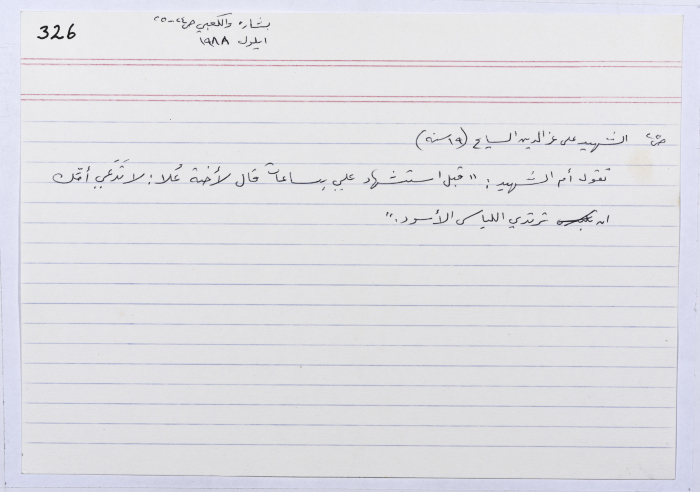 326
بشاره والكعبي ص٢٤-٢٥
ايلول ١٩٨٨
ص٢٥ الشهيد علي عز الدين السايح (١٩ سنة)
تقول أم الشهيد: "قبل استشهاد علي بساعات قال لأخته عُلا: لا تَدَعي أمّك
ان ترتدي اللباس الأسود."